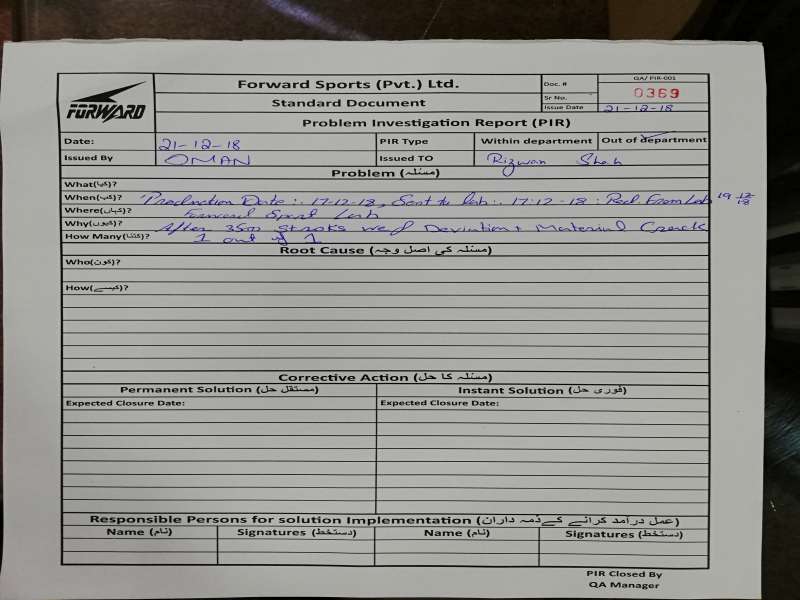 FORWARD
Forward Sports (Pvt.) Ltd.
Standard Document
Problem Investigation Report (PIR)
Doc. # QA/ PIR-001
Sr No. 0369
Issue Date 21-12-18
Date: 21-12-18 PIR Type Within department Out of department
Issued By OMAN Issued TO Rizwan Shah
Problem (مسئلہ)
What(کیا)?
When(کب)? Production Date:. 17-12-18, Sent to lab:. 17-12-18: Recd. From Lab 19 12/18
Where(کہاں)? Forward Sport Lab
Why(کیوں)? After 3500 Stroks Deviation + Material Crack
How Many(کتنا)? 1 out of 1
Root Cause (مسئلہ کی اصل وجہ)
Who(کون)?
How(کیسے)?
Corrective Action (مسئلہ کا حل)
Permanent Solution (مستقل حل) Instant Solution (فوری حل)
Expected Closure Date: Expected Closure Date:
Responsible Persons for solution Implementation (عمل درآمد کرانے کے ذمہ داران)
Name (نام) Signatures (دستخط) Name (نام) Signatures (دستخط)
PIR Closed By
QA Manager